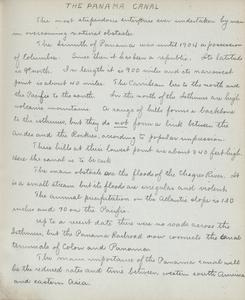 THE PANAMA CANAL
The most stupendous enterprise ever undertaken by man
in overcoming natural obstacles.
The Isthmus of Panama was until 1904 a possession
of Columbia. Since then it has been a republic. Its latitude
is 9° north. It is about 400 miles and its narrowest
point is about 40 miles. The Carribean lies to the north and
the Pacific to the south. In the north of the Isthmus are high
volcanic mountains. A range of hills forms a backbone
to the isthmus, but they do not form a link between the
Andes and the Rockies, according to popular impression.
These hills at their lowest point are about 340 feet high.
Here the canal is to be cut.
The main obstacle are the floods of the Chagres River. It
is a small stream but its floods are irregular and violent.
The annual precipitation on the Atlantic slope is 130
inches and 70 on the Pacific.
Up to a recent date there were no roads across the
Isthmus, but the Panama Railroad now connects the canal
terminals of Colon and Panama.
The main importance of the Panama canal will
be the reduced rates and time between western South America
and eastern Asia.